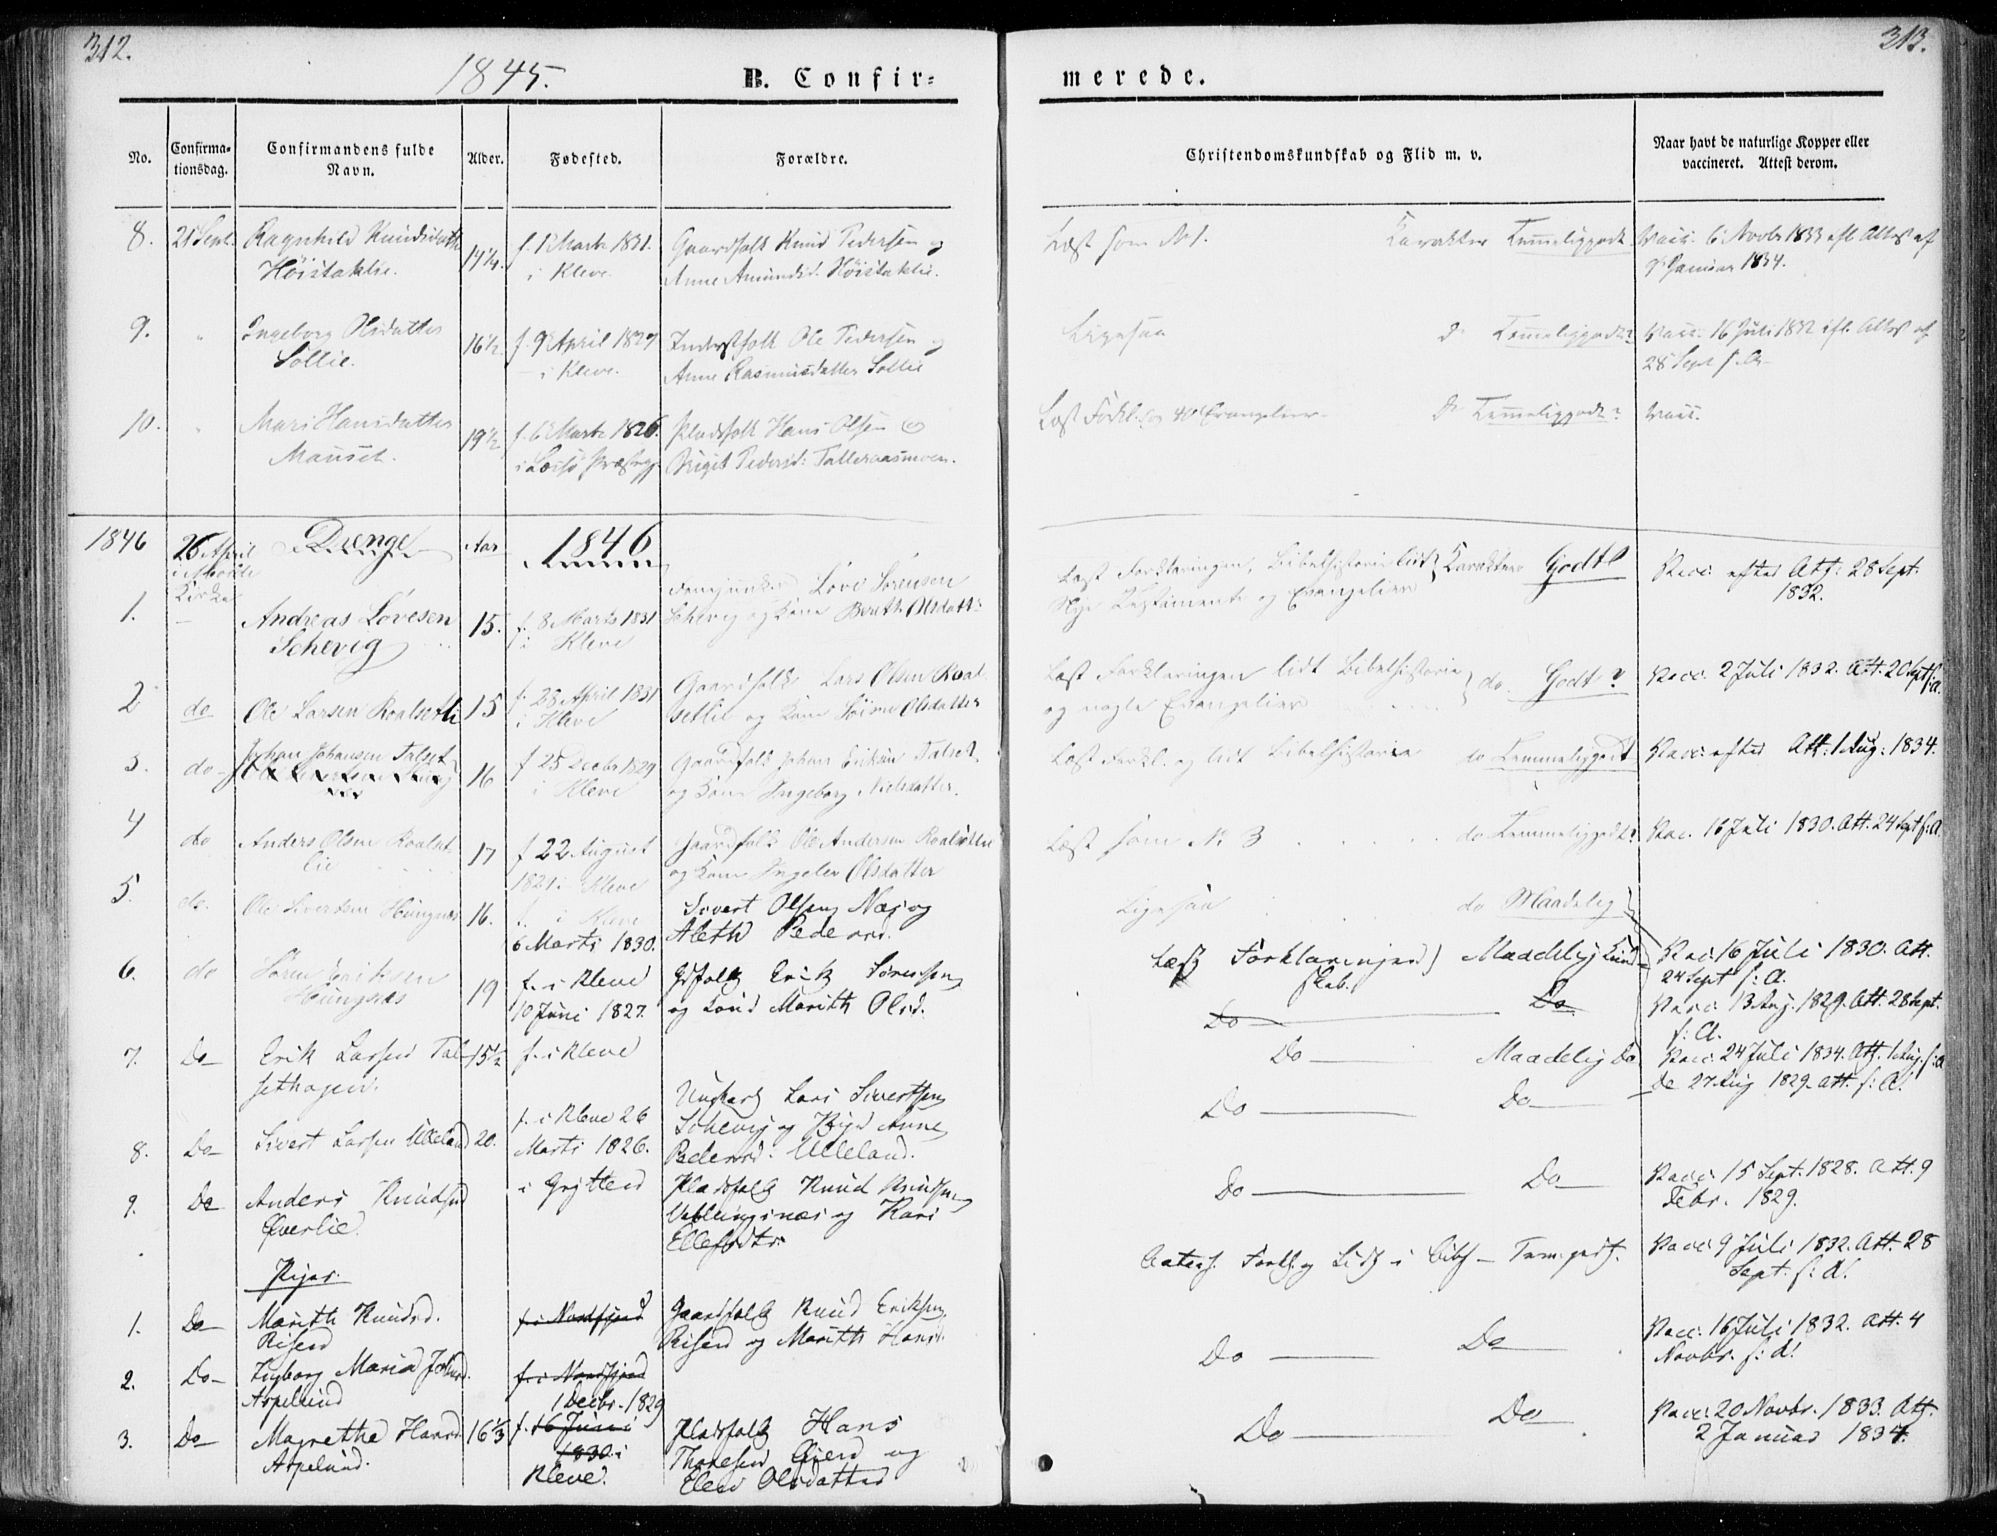 312.
1845.
B. Confir=
No.
Confirma-
tionsdag.
Confirmandens fulde
Navn.
Alder.
Fødested.
Forældre.
8. 21 Sept. Ragnhild Knudsdatter 14½. f. 1 Marts 1831. Gaardfolk Knud Pedersen og
Høistaklie. i Kleve. Anne Amundsd. Høistaklie.
9. " Ingeborg Olsdatter 16½. f. 9 April 1829 Inderstfolk Ole Pedersen og
Sollie. i Kleve. Anne Rasmusdatter Sollie
10. " Mari Hansdatter 19½ f. 6 Marts 1826. Pladsfolk Hans Olsen og
Mauset. i Præstegj Birgit Pedersd:
1846 26 April Drenge Aar 1846
Kirke
1. Andreas Løvesen 15. f. 8 Marts 1831 Løve Sørensen
Schevig i Kleve Schevig og Kone Berith Olsdatt:
2 do Ole Larsen Roalsetli 15 f. 28 April 1831 Gaardfolk Lars Olsen Roal-
i Kleve setlie og Kone Olsdatter
3. do Johan Johansen Talset 16 f 25 Decbr 1829 Gaardfolk Johan Eriksen Talset
i Kleve og Kone Ingeborg Nielsdatter.
4 do Anders Olsen Roalset- 17 f 22 August Gaardfolk Ole Andersen Roalsetlie
lie 1829 i Kleve og Kone Ingelev Olsdatter
5. do. Ole Sivertsen 16. f. i Kleve Sivert Olsen Næs og
6 Marts 1830. Aleth Pedersd.
6. do Søren Eriksen 19 f. i Kleve Gdfolk Erik Sørensen
10 Juni 1827. og Marith Olsd.
7. Do Erik Larsen Tal- 15½ f. i Kleve
sethagen.
8. Do Sivert Larsen Ulleland 20. f. i Kleve 26 Ungkarl Lars Sivertsen
Marts 1826. Schevig og Pige Anne
Pedersd: Ulleland.
9. Do Anders Knudsen i Grytten Pladsfolk Knud Knudsen
Øverlie. Veblungsnæs og Kari
Ellefsdtr.
Piger.
1. Do Marith Knudsd. f. i Nordfjord Gaardfolk Knud Eriksen
Risen Risen og Marith Hansd.
2. Do Ingborg Maria f. i Nordfjord
Aspelund 1 Decbr. 1829
3. Do Magrethe Hansd. 16⅓ f. 16 Juni Pladsfolk Hans
Aspelund. 1830 i Thoresen og
Kleve. Elen Olsdatter
313.
merede.
Christendomskundskab og Flid m. v.
Naar havt de naturlige Kopper eller
vaccineret. Attest derom.
Læst som N 1. Karakter Temmeliggodt Vacc. 6 Novbr 1833 efl. Attest af
9 Januar 1834.
Ligesaa d Temmeliggodt? Vacc. 16 Juli 1832 efl. Attest af
28 Sept s. A.
Læst Forkl. og Evangelier d Temmeliggodt? Vacc.
Læst Forklaringen, Bibelhistorie lidt Karakter Godt Vacc. efter Att: 28 Sept.
Nye Testamente og Evangelier 1832.
Læst Forklaringen lidt Bibelhistorie do Godt? Vacc. 2 Juli 1832. Att. 20 Sept s: A.
og nogle Evangelier
Læst Forkl. og lidt Bibelhistorie do Temmeliggodt Vacc efter Att: 1 Aug: 1834.
Læst som N 3 do Temmeliggodt? Vac. 16 Juli 1830. Att. 24 Sept s: A.
Ligesaa do Maadelig
Læst Forklaringen) Maadelig Kund- Vac: 16 Juli 1830. Att.
skab. 24 Sept s: A.
Do Do Vacc. 13 Aug. 1829. Att. 28 Sept.
s: A.
Do Maadelig Do Vacc. 24 Juli 1834. Att. 1 Aug. s: A
Do Do Do 27 Aug 1829. Att. s: A.
Do Do Vacc. 15 Sept. 1828. Att. 9
Febr. 1829.
Forkl. og Lidt i Tem. godt. Vacc 9 Juli 1832. Att. 28
Sept. s: A.
Do Do Vacc. 16 Juli 1832. Att. 4
Novbr. s: A.
Do Do Vacc. 20 Novbr. 1833. Att.
2 Januar 1834.